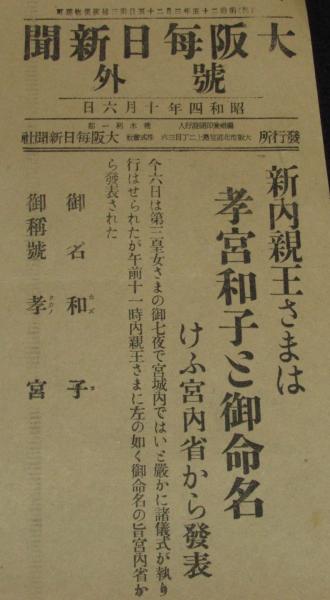 大阪每日新聞
號外
昭和四年十月六日
發行所 大阪市北區堂島上二丁目三六 株式會社 大阪每日新聞社
新內親王さまは
孝宮和子と御命名
けふ宮內省から發表
今六日は第三皇女さまの御七夜で宮城內ではいと嚴かに諸儀式が執り
行はせられたが午前十一時內親王さまに左の如く御命名の旨宮內省か
ら發表された
御名 和子
カズ コ
御稱號 孝宮
タカノ